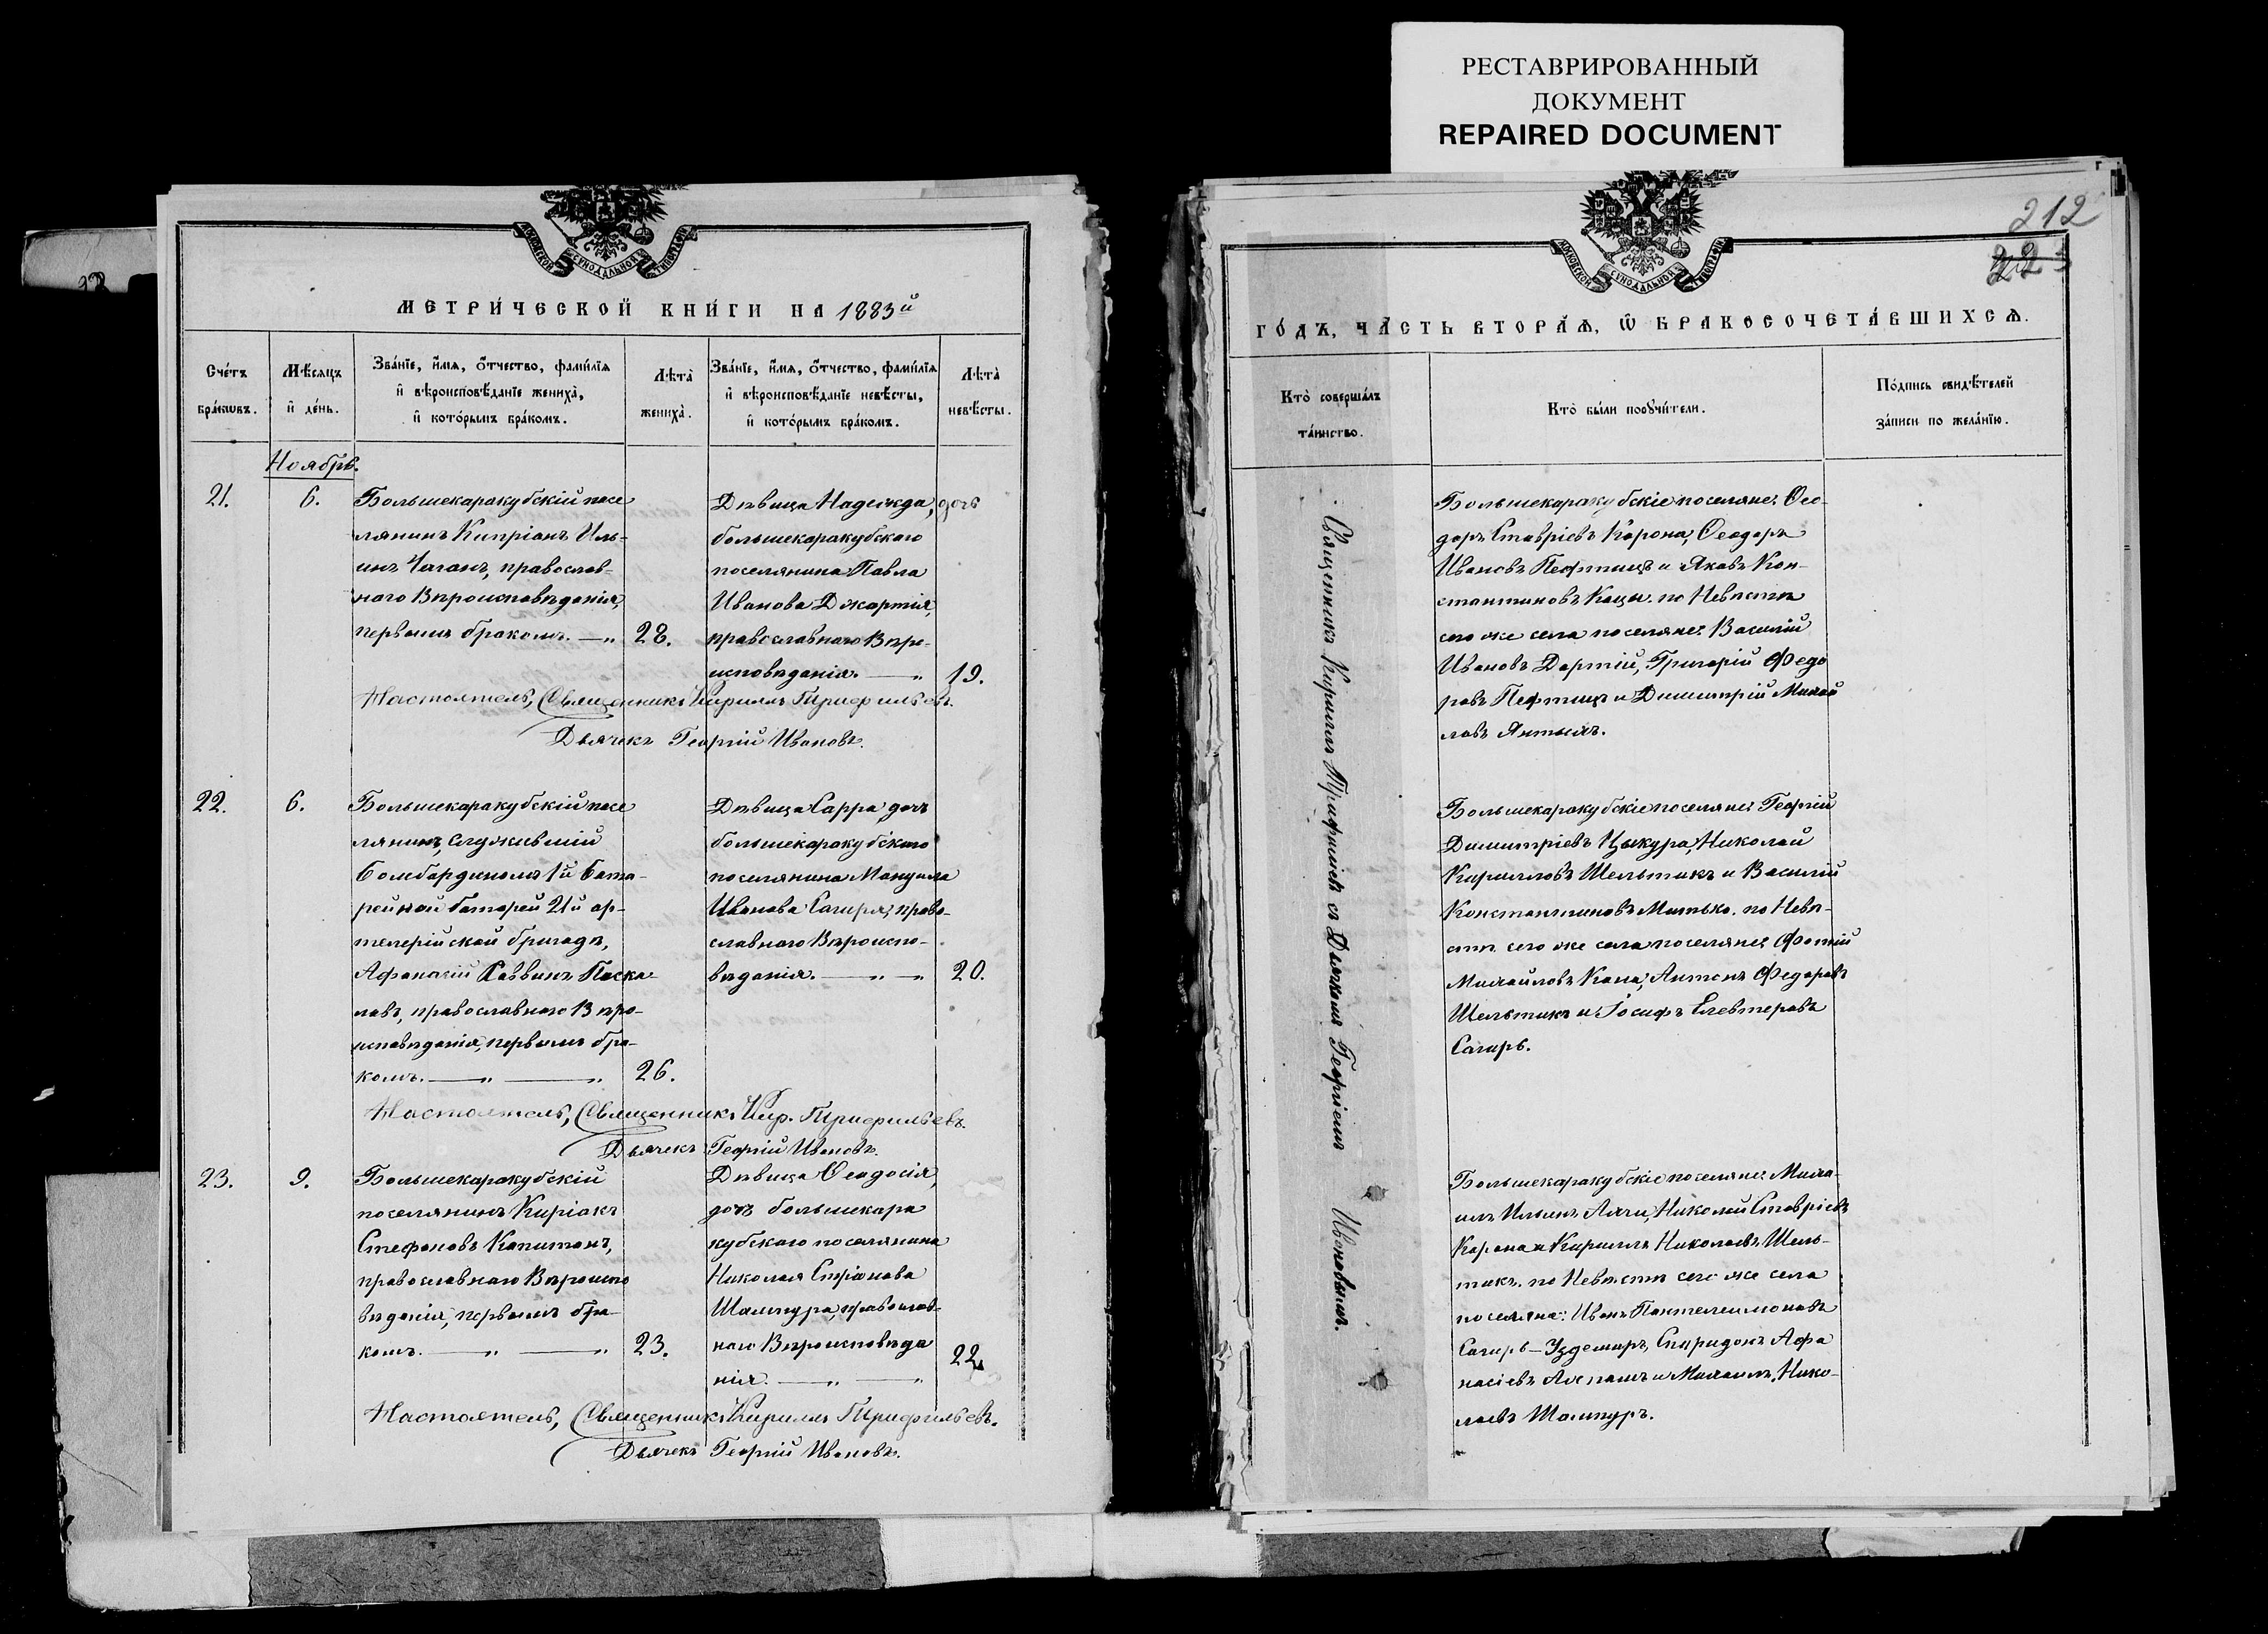 РЕСТАВРИРОВАННЫЙ
ДОКУМЕНТ
REPAIRED DOCUMENT
МОСКОВСКОЙ СѴНОДАЛЬНОЙ ТИПОГРАФІИ
МЕТРИ́ЧЕСКОЙ КНИ́ГИ НА 1883й
Сче́тъ бра́кѡвъ.
Мѣ́сяцъ и де́нь.
Зва́нїе, и́мя, о́тчество, фами́лїя
и вѣроисповѣ́данїе жениха̀,
и кото́рымъ бра́комъ.
Лѣта̀ жениха̀.
Зва́нїе, и́мя, о́тчество, фами́лїя
и вѣроисповѣ́данїе невѣ́сты,
и кото́рымъ бра́комъ.
Лѣта̀ невѣ́сты.
Ноябрь.
21.
6.
Большекаракубскій посе
лянинъ Кипріанъ Иль-
инъ Чаганъ, православ-
наго Вѣроисповѣданія,
первымъ бракомъ. —„
28.
Дѣвица Надежда, дочь
большекаракубскаго
поселянина Павла
Иванова Джартія,
православнаго Вѣро-
исповѣданія. —„
19.
Настоятель, Священникъ Кириллъ Трифильевъ.
Дьячекъ Георгій Ивановъ.
22.
6.
Большекаракубскій посе
лянинъ, служившій
бомбардиромъ 1й бата-
рейной батареи 21й ар-
телерійской бригадѣ,
Афанасій Саввинъ Паска
ловъ, православнаго Вѣро-
исповѣданія, первымъ бра-
комъ. —„ —„
26.
Дѣвица Сарра, дочь
большекаракубскаго
поселянина Мануила
Иванова Сагиря, право-
славнаго Вѣроиспо-
вѣданія. —„ —„
20.
Настоятель, Священникъ Кир. Трифильевъ.
Дьячекъ Георгій Ивановъ.
23.
9.
Большекаракубскій
поселянинъ Киріакъ
Стефановъ Капитанъ,
православнаго Вѣроиспо
вѣданія, первымъ бра-
комъ. —„ —„
23.
Дѣвица Ѳеодосія,
дочь большекара
кубскаго поселянина
Николая Стріонова
Шампура, православ-
наго Вѣроисповѣда
нія. —„ —„
22.
Настоятель, Священникъ Кириллъ Трифильевъ.
Дьячекъ Георгій Ивановъ.
212
223
МОСКОВСКОЙ СѴНОДАЛЬНОЙ ТИПОГРАФІИ
ГО́ДЪ, ЧА́СТЬ ВТОРА́Я, Ѡ БРАКОСОЧЕТА́ВШИХСЯ.
Кто̀ соверша́лъ
та́инство.
Кто̀ бы́ли порꙋчи́тели.
По́дпись свидѣ́телей
за́писи по жела́нїю.
Священникъ Кириллъ Трифильевъ съ Дьячкомъ Георгіемъ Ивановымъ.
Большекаракубскіе поселяне: Ѳео-
доръ Ставріевъ Карона, Ѳеодоръ
Ивановъ Пефтицъ и Яковъ Кон-
стантиновъ Кацы. по Невѣстѣ
сего же села поселяне: Василій
Ивановъ Дартій, Григорій Федо
ровъ Пефтицъ и Димитрій Михай
ловъ Янтыхъ.
Большекаракубскіе поселяне: Георгій
Димитріевъ Цыкура, Николай
Кирилловъ Шельтикъ и Василій
Константиновъ Матько. по Невѣ-
стѣ сего же села поселяне: Фотій
Михайловъ Капа, Антонъ Федоровъ
Шельтикъ и Іосифъ Елевтеровъ
Сагирь.
Большекаракубскіе поселяне: Миха-
илъ Ильинъ Ахчи, Николай Ставріевъ
Карона и Кириллъ Николаевъ Шель-
тикъ. по Невѣстѣ сего же села
поселяне: Иванъ Пантелеимоновъ
Сагирь-Уздемиръ, Спиридонъ Афа
насіевъ Ахпашъ и Михаилъ Нико-
лаевъ Шампуръ.